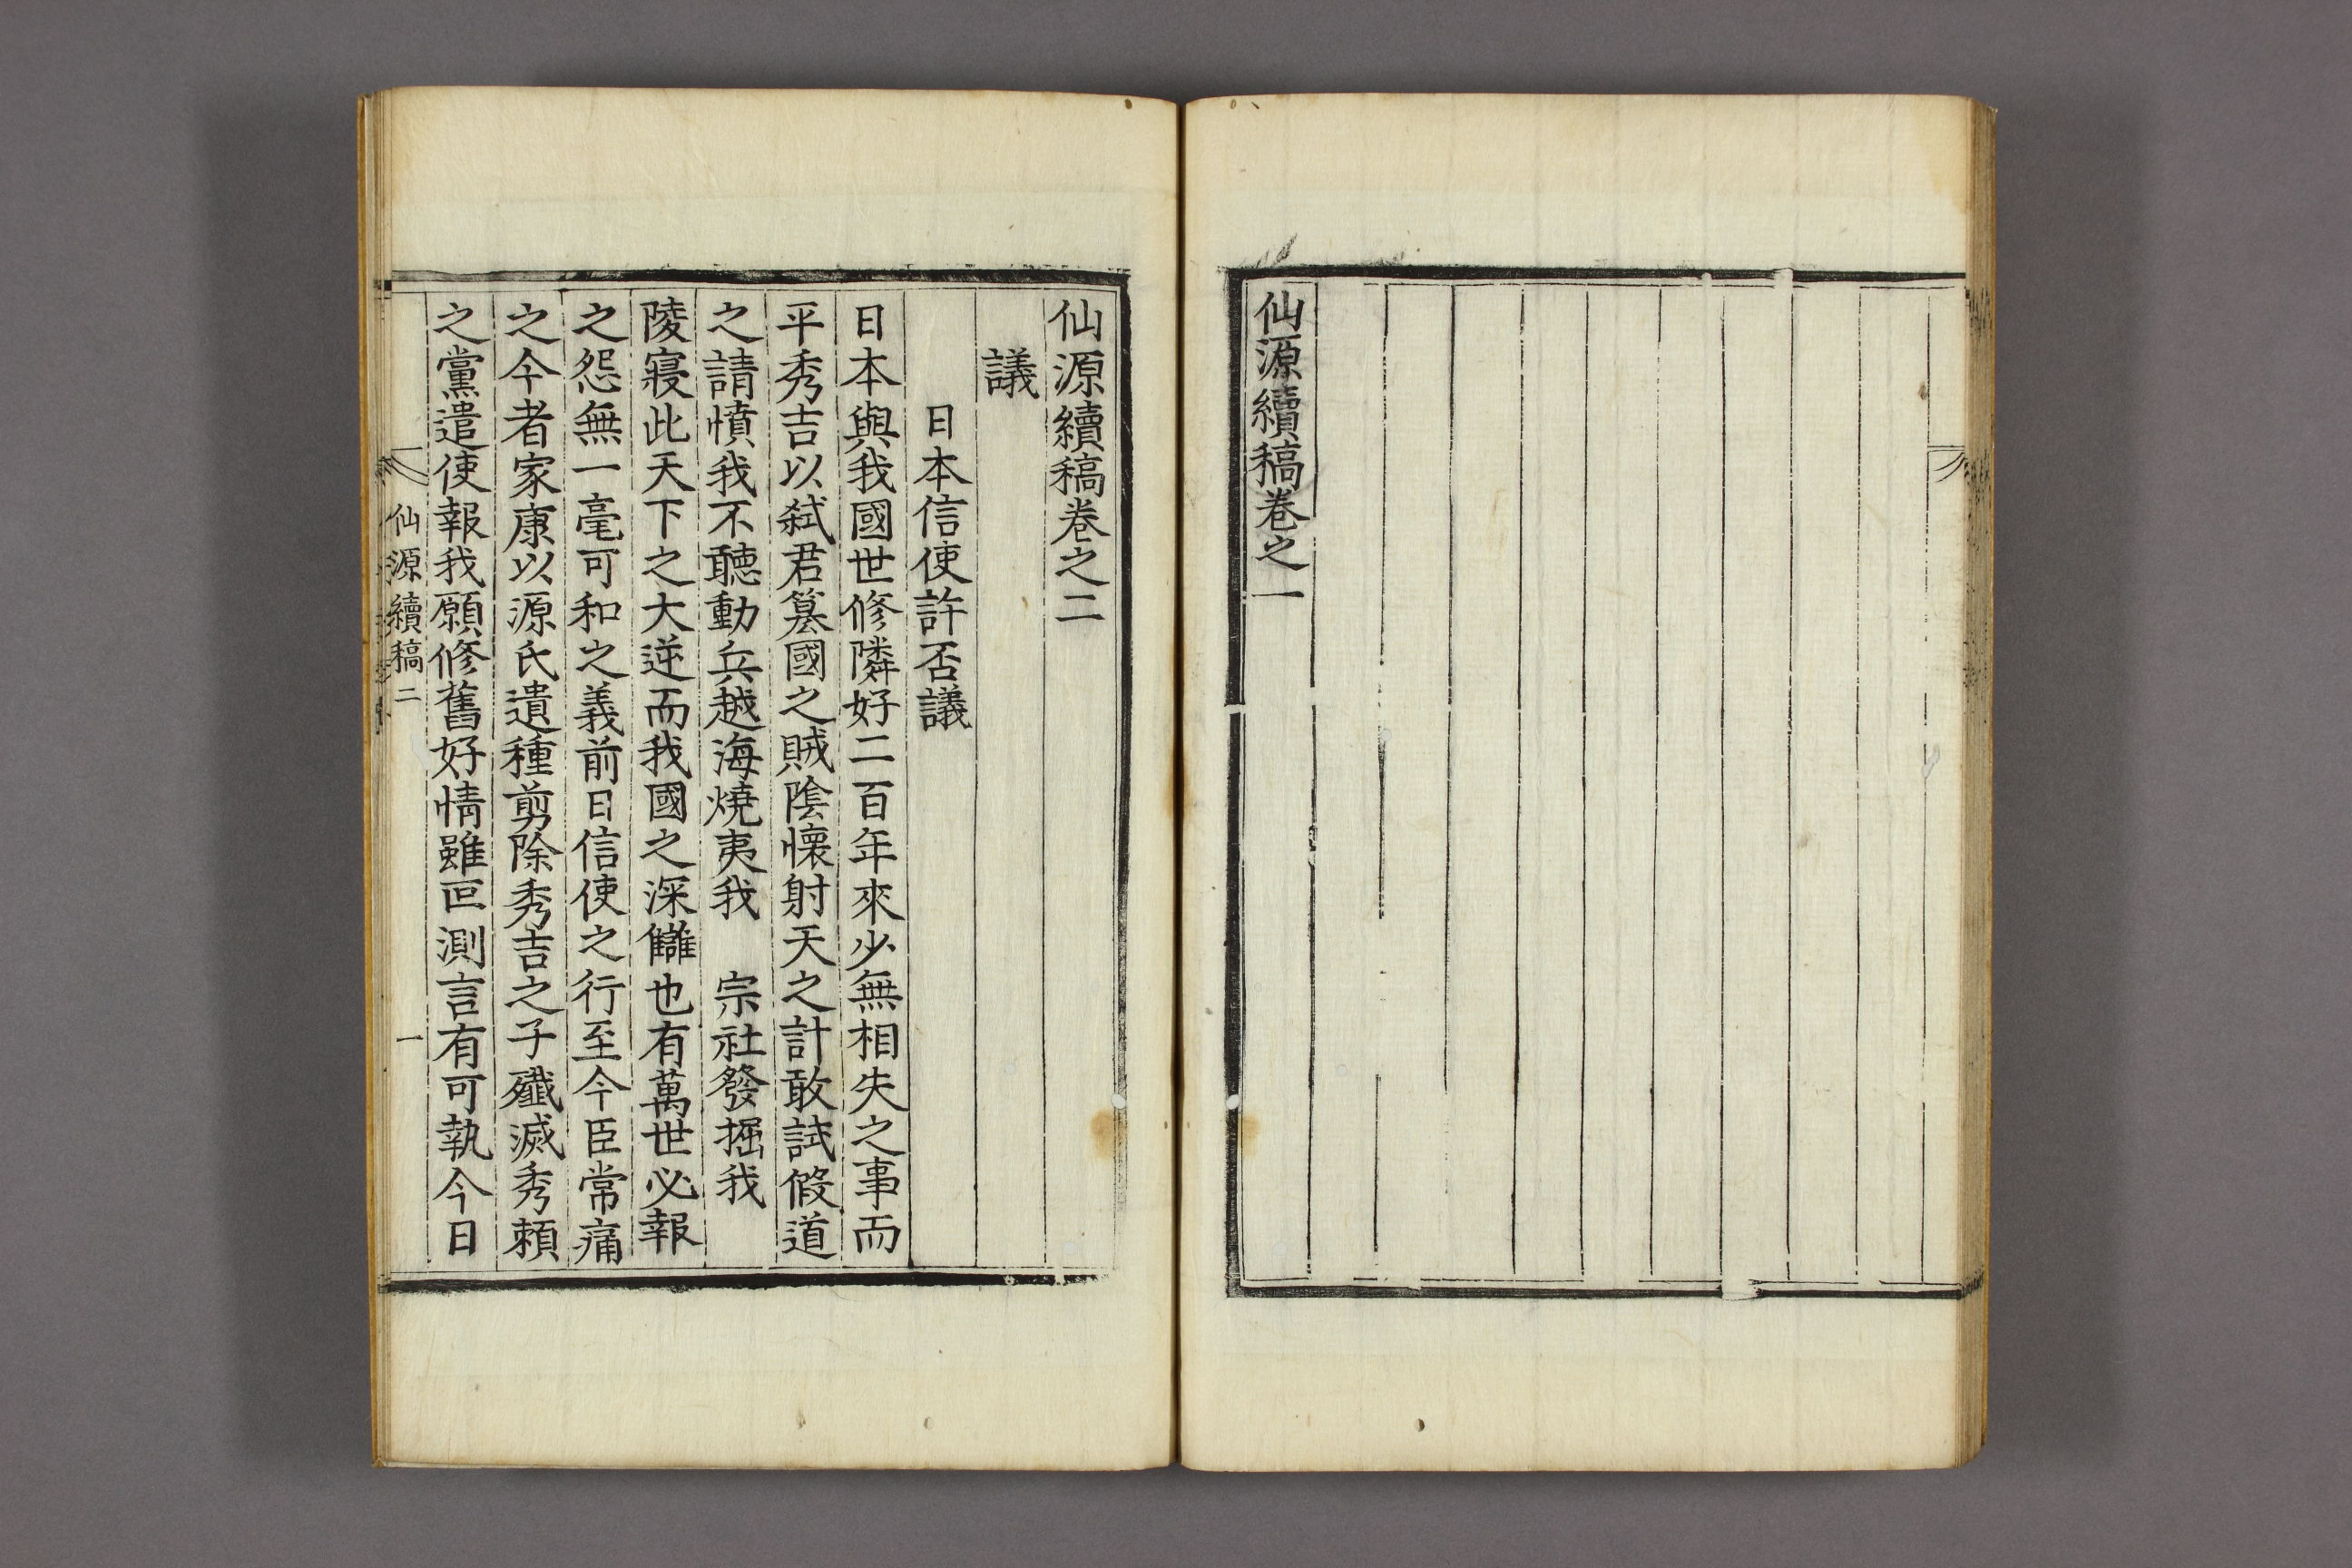 仙源續稿卷之一
仙源續稿卷之二
議
日本信使許否議
日本與我國世修隣好二百年來少無相失之事而
平秀吉以弑君簒國之賊陰懷射天之計敢試假道
之請憤我不聽動兵越海燒夷我　宗社發掘我
陵寢此天下之大逆而我國之深讎也有萬世必報
之怨無一毫可和之義前日信使之行至今臣常痛
之今者家康以源氏遺種剪除秀吉之子殲滅秀頼
之黨遣使報我願修舊好情雖叵測言有可執今日
仙源續稿二
一